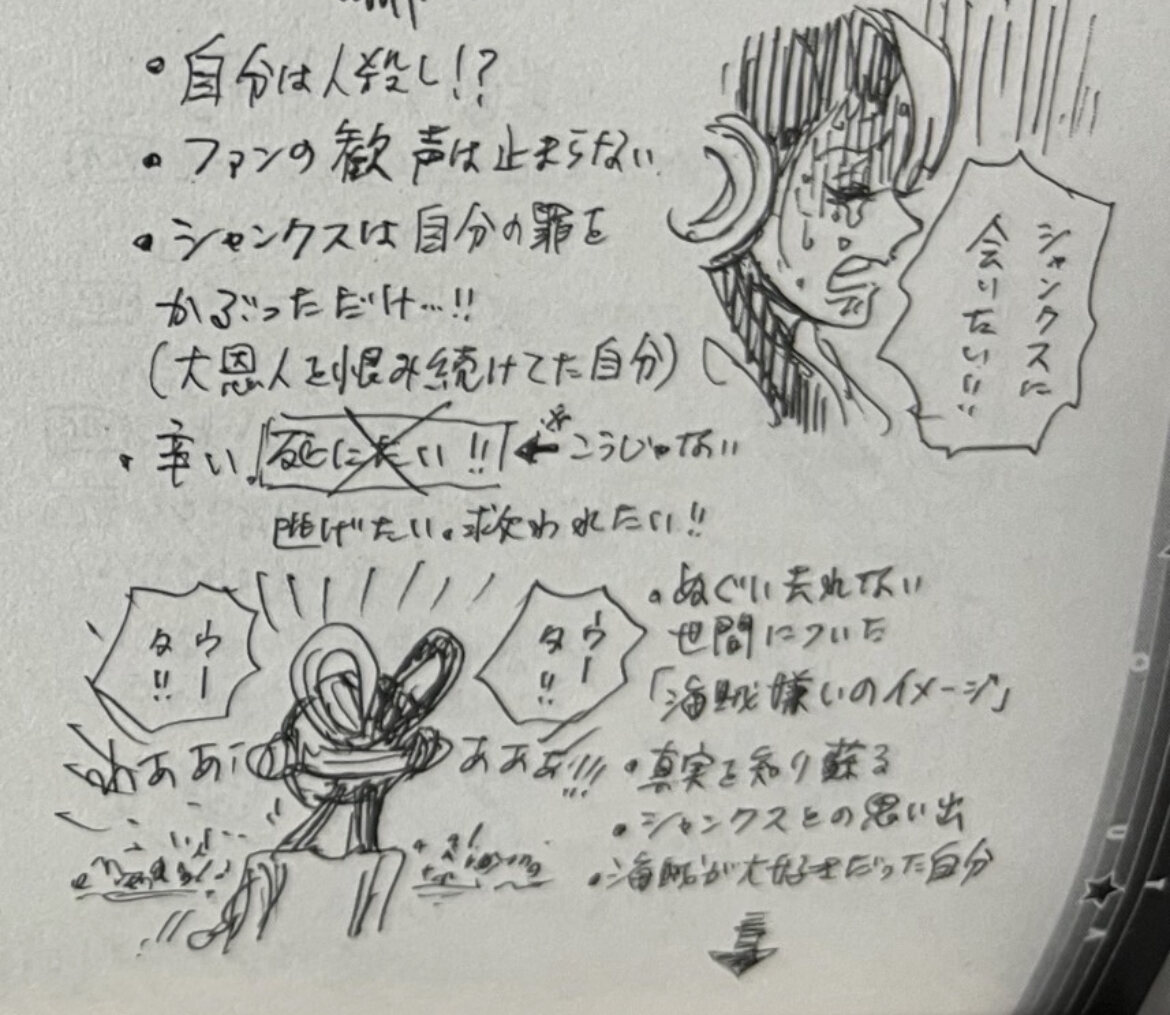 ・自分は人殺し!?
・ファンの歓声は止まらない
・シャンクスは自分の罪を
かぶっただけ…!!
(大恩人を恨み続けてた自分)
・辛い。死にたい!! ← ※こうじゃない
逃げたい。救われたい!!
シャンクスに
会いたい!!
ウータ!!
ウータ!!
わああ
あああ!!!
・ぬぐい去れない
世間についた
「海賊嫌いのイメージ」
・真実を知り蘇る
・シャンクスとの思い出
・海賊が大好きだった自分